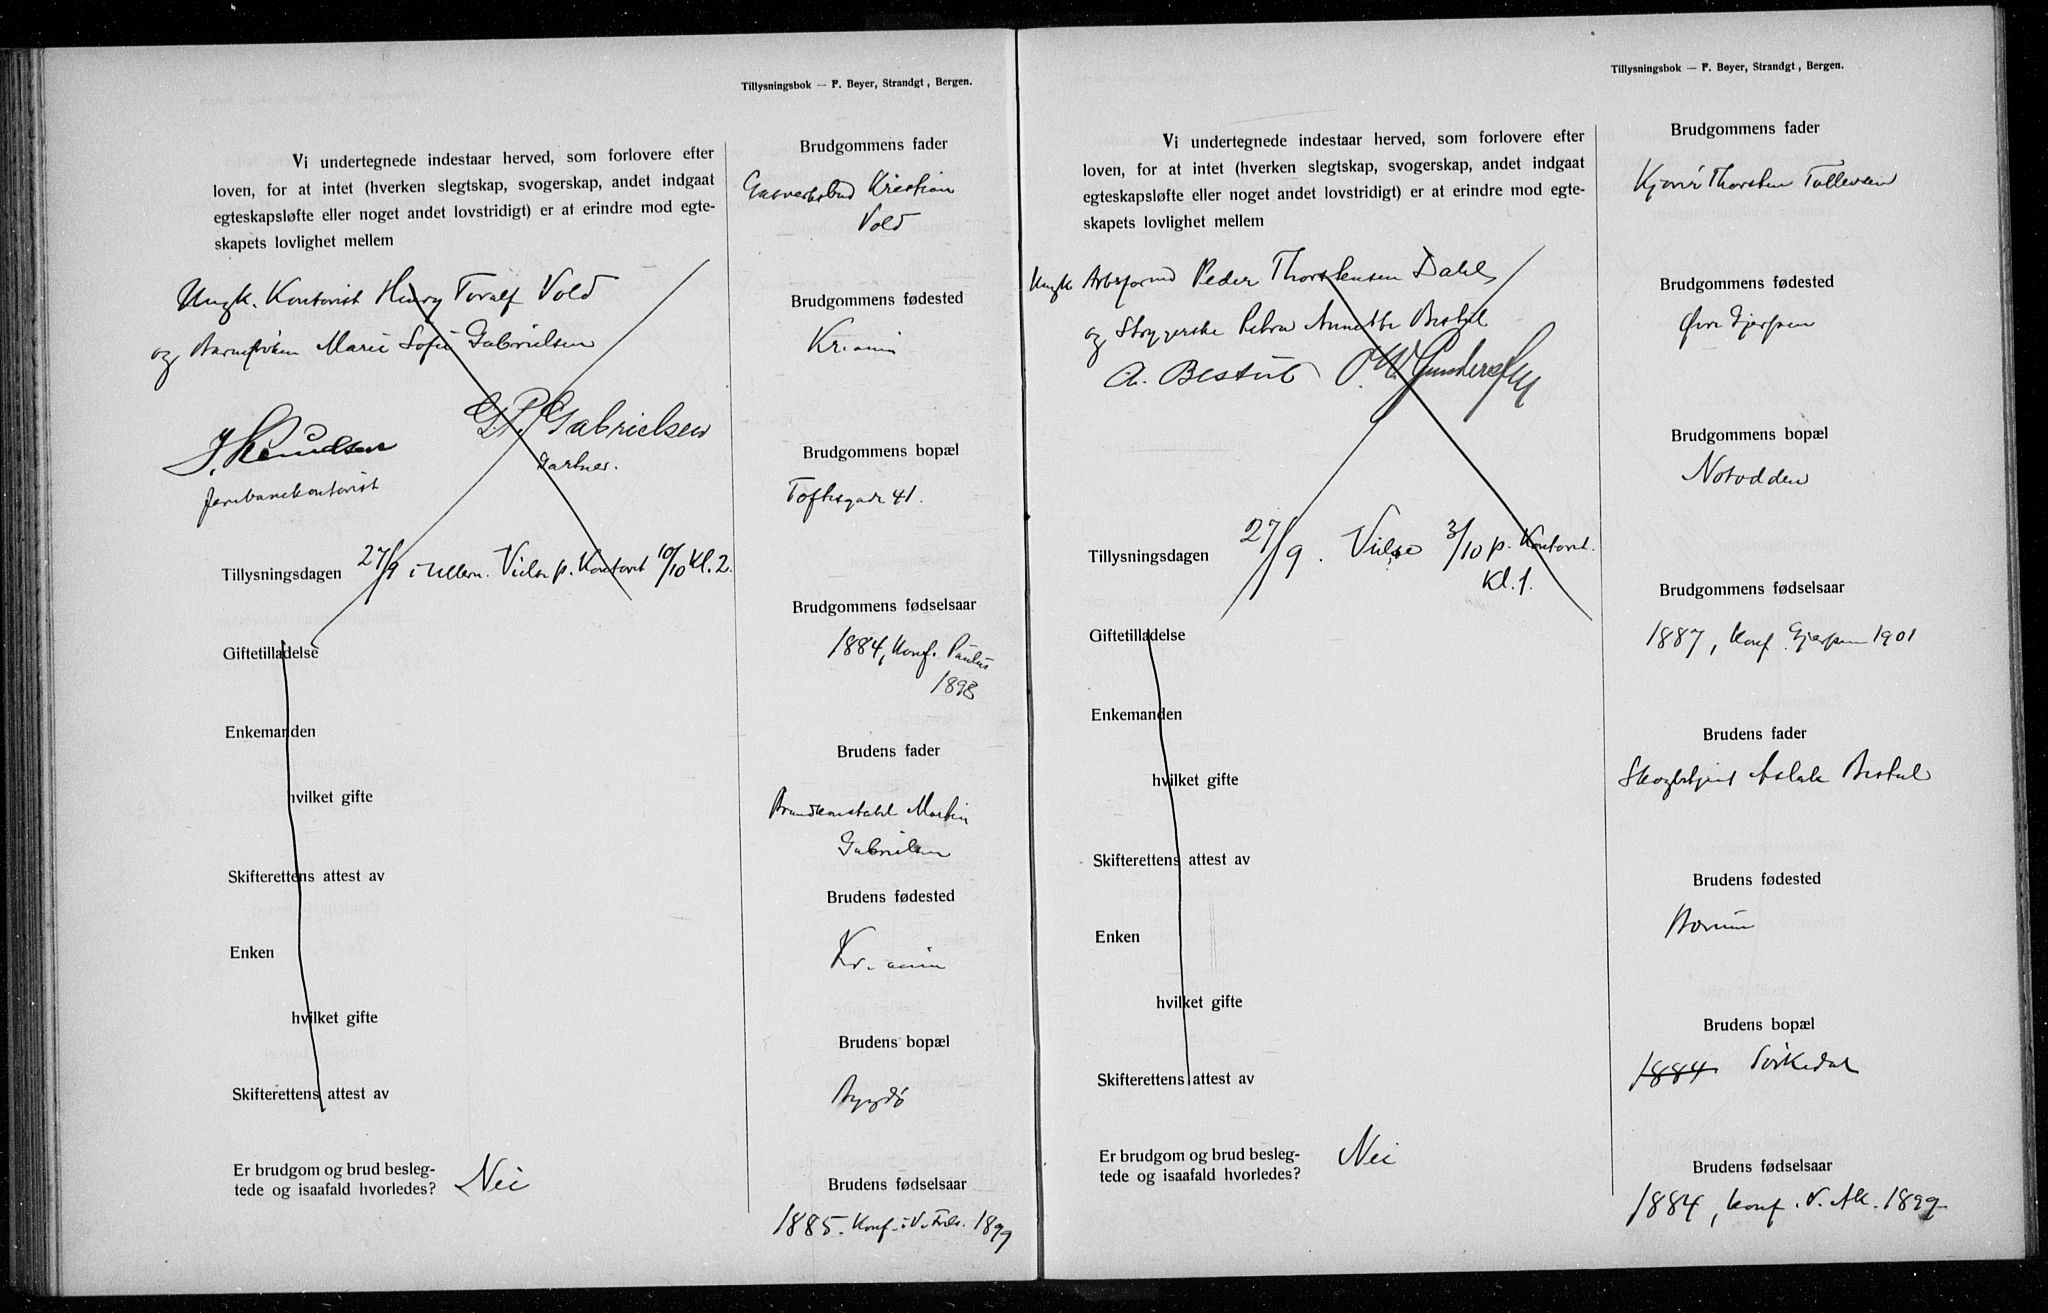 Tillysningsbok — F. Beyer, Strandgt, Bergen.
Vi undertegnede indestaar herved, som forlovere efter
loven, for at intet (hverken slegtskap, svogerskap, andet indgaat
egteskapsløfte eller noget andet lovstridigt) er at erindre mod egte-
skapets lovlighet mellem
Ungk. Kontorist Henry Toralf Vold
og Marie Sofie Gabrielsen
J. Knudsen
Jernbanekontorist
G. P. Gabrielsen
Gartner.
Tillysningsdagen 27/9 i Ullern. Vielse p. Kontoret 10/10 Kl. 2.
Giftetilladelse
Enkemanden
hvilket gifte
Skifterettens attest av
Enken
hvilket gifte
Skifterettens attest av
Er brudgom og brud besleg-
tede og isaafald hvorledes? Nei
Brudgommens fader
Kristian
Vold
Brudgommens fødested
Kr.ania
Brudgommens bopæl
Toftesgade 41.
Brudgommens fødselsaar
1884, Konf. Paulus
1898
Brudens fader
Brandkonstabel Martin
Gabrielsen
Brudens fødested
Kr.ania
Brudens bopæl
Bygdø
Brudens fødselsaar
1885. Konf. i V. Frels. 1899
Tillysningsbok — F. Beyer, Strandgt, Bergen.
Vi undertegnede indestaar herved, som forlovere efter
loven, for at intet (hverken slegtskap, svogerskap, andet indgaat
egteskapsløfte eller noget andet lovstridigt) er at erindre mod egte-
skapets lovlighet mellem
Ungk. Arb.formd Peder Thorstensen Dahl
og Strygerske Petra Annette Bestul
A. Bestul
Tillysningsdagen 27/9. Vielse 3/10 p. Kontoret.
Kl. 1.
Giftetilladelse
Enkemanden
hvilket gifte
Skifterettens attest av
Enken
hvilket gifte
Skifterettens attest av
Er brudgom og brud besleg-
tede og isaafald hvorledes? Nei
Brudgommens fader
Thorsten Tollevsen
Brudgommens fødested
Øvre Gjerpen
Brudgommens bopæl
Notodden
Brudgommens fødselsaar
1887, Konf. Gjerpen 1901
Brudens fader
Aslak Bestul
Brudens fødested
Bærum
Brudens bopæl
1884 Sørkedal
Brudens fødselsaar
1884, Konf. V. Ak. 1899